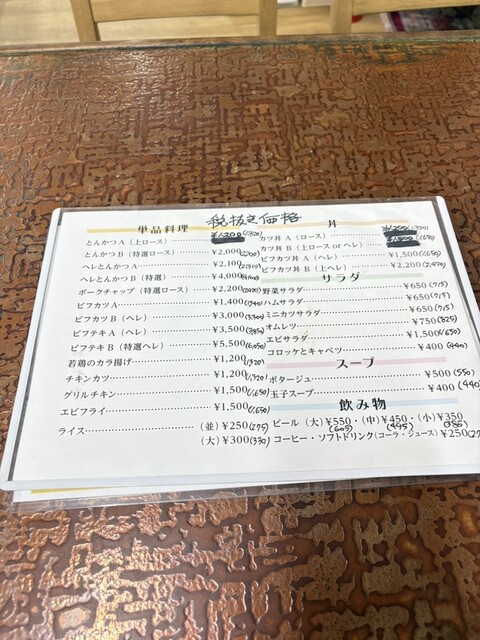 税抜き価格
単品料理
とんかつA（上ロース） ¥1200(1,320)
とんかつB（特選ロース） ¥2,000(2200)
ヘレとんかつA ¥2,100(2310)
ヘレとんかつB（特選） ¥4,000(4400)
ポークチャップ（特選ロース） ¥2,200(2420)
ビフカツA ¥1,400(1540)
ビフカツB（ヘレ） ¥3,000(3300)
ビフテキA（ヘレ） ¥3,500(3850)
ビフテキB（特選ヘレ） ¥5,500(6050)
若鶏のカラ揚げ ¥1,200(1,320)
チキンカツ ¥1,200(1,320)
グリルチキン ¥1,500(1,650)
エビフライ ¥1,500(1,650)
ライス （並）¥250(275)
（大）¥300(330)
丼
カツ丼A（ロース） ¥1200(1320)
カツ丼B（上ロース or ヘレ）
ビフカツ丼A（ヘレ） ¥1,500(1650)
ビフカツ丼B（上ヘレ） ¥2,200(2,420)
サラダ
野菜サラダ ¥650(715)
ハムサラダ ¥650(715)
ミニカツサラダ ¥650(715)
オムレツ ¥750(825)
エビサラダ ¥1,500(1650)
コロッケとキャベツ ¥400(440)
スープ
ポタージュ ¥500(550)
玉子スープ ¥400(440)
飲み物
ビール（大）¥550・（中）¥450・（小）¥350
(605) (495) (385)
コーヒー・ソフトドリンク（コーラ・ジュース）¥250